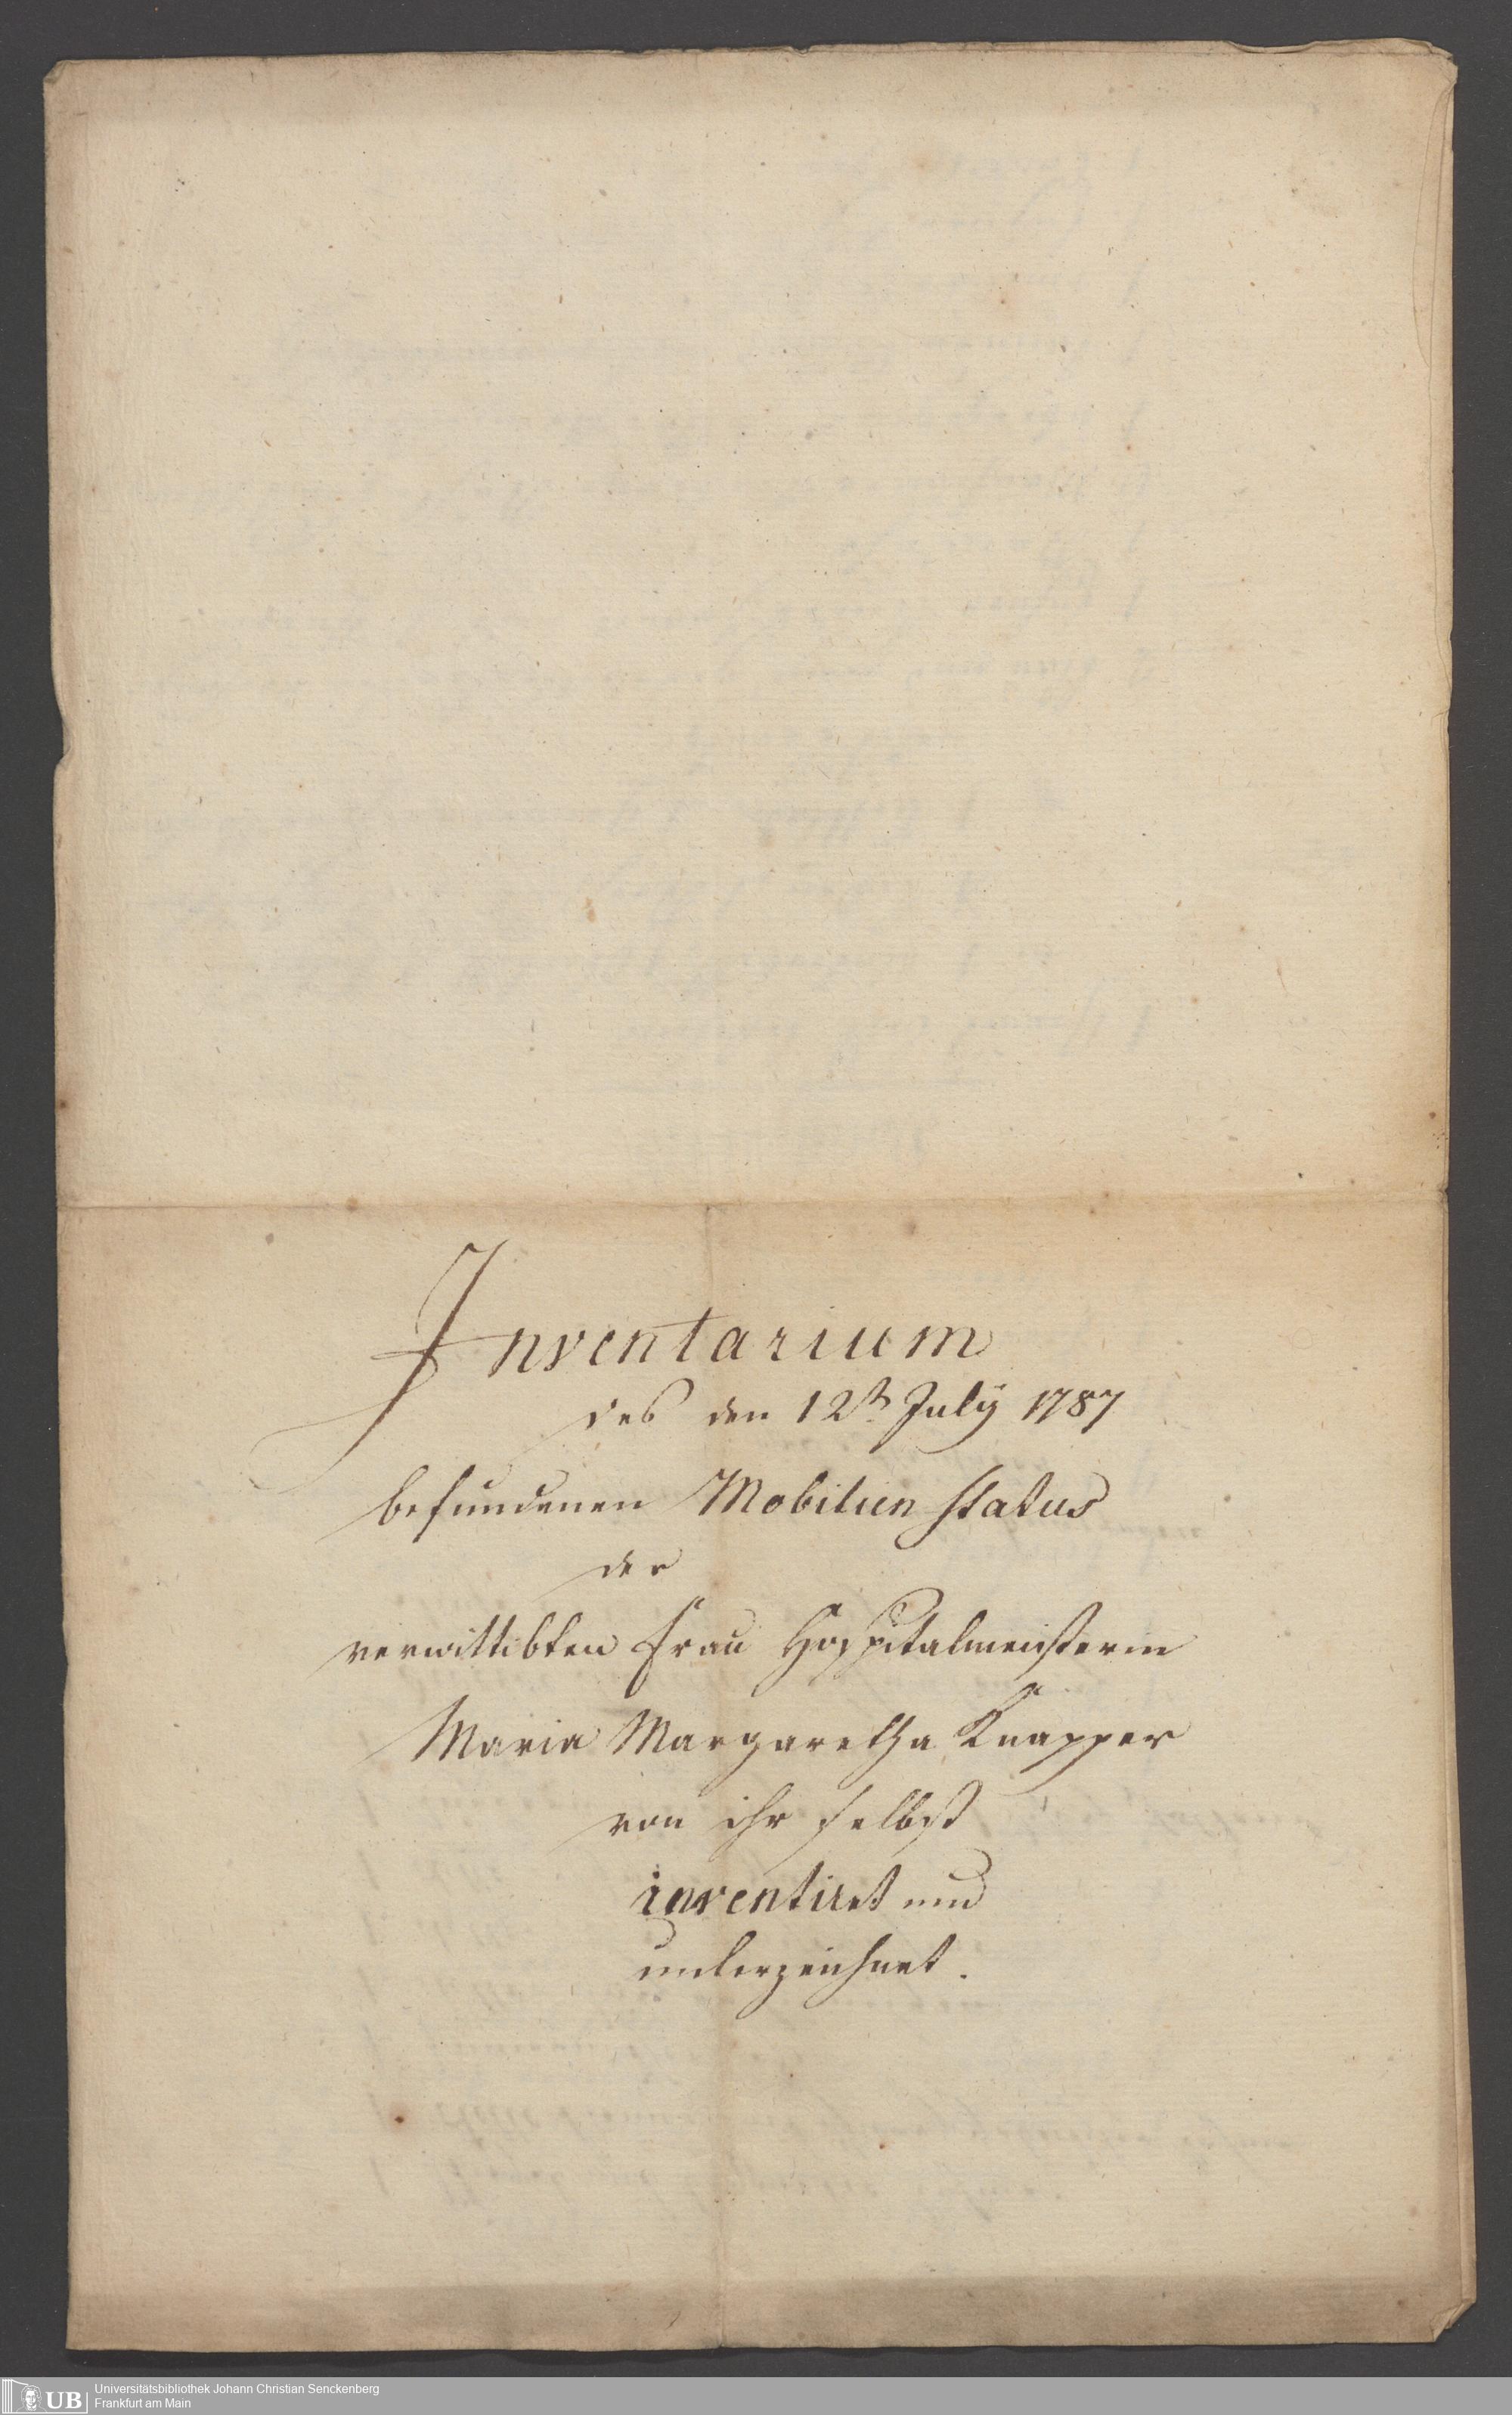 Inventarium
des den 12t. July 1787
befundenen Mobilien status
der
verwittibten Frau Hospitalmeisterin
Maria Margaretha Knapper
von ihr selbst
inventiret und
unterzeichnet.
UB
Universitätsbibliothek Johann Christian Senckenberg
Frankfurt am Main